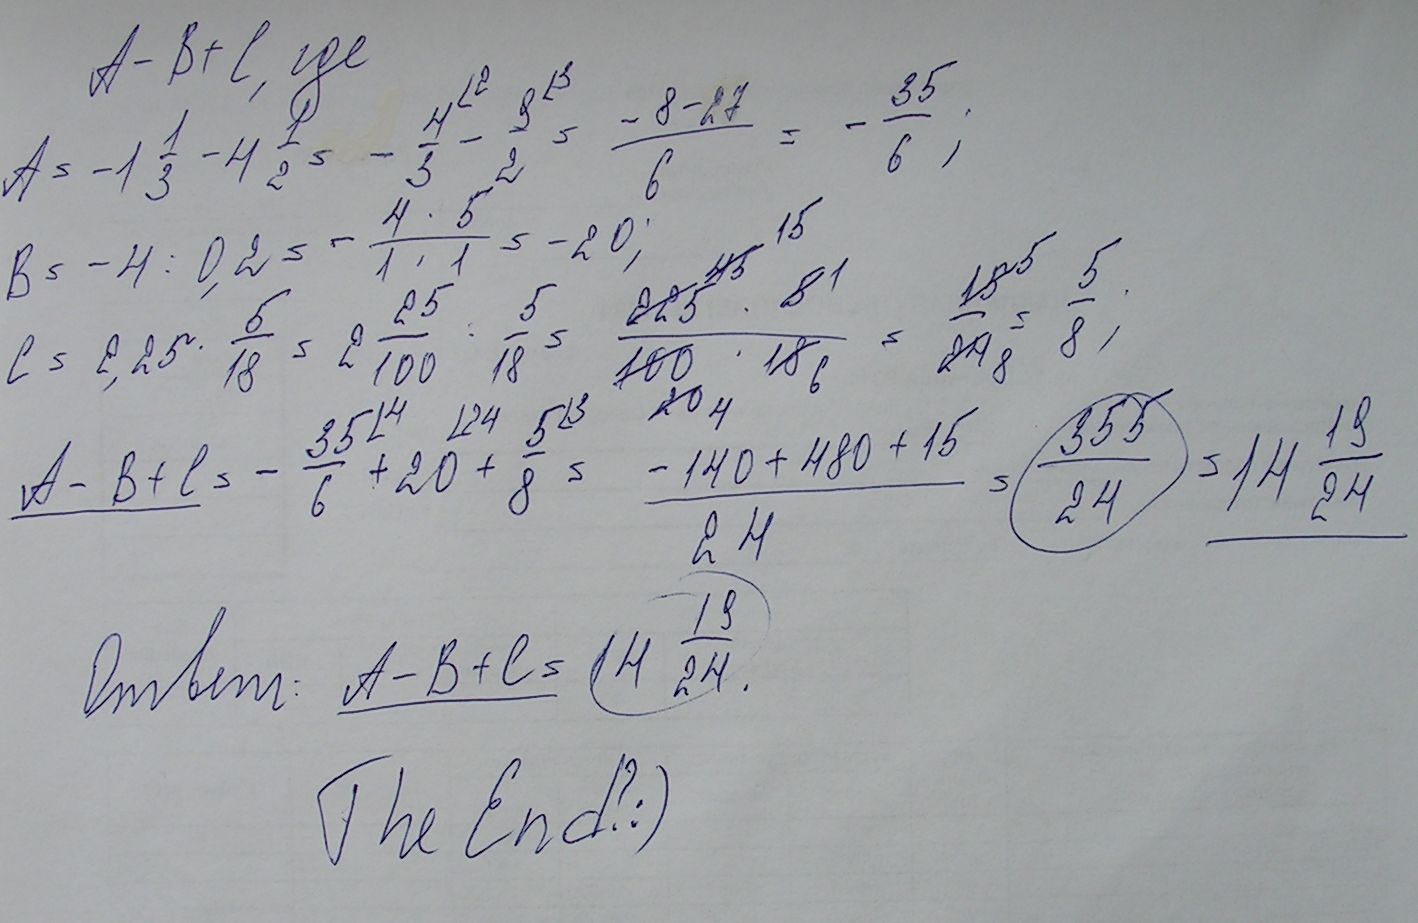 A - B + C, где
A = -1 1/3 - 4 1/2 = - 4/3 ∟2 - 9/2 ∟3 = (-8-27)/6 = - 35/6;
B = -4 : 0,2 = - (4 · 5)/(1 · 1) = -20;
C = 2,25 · 5/18 = 2 25/100 : 5/18 = (225 45 15 · 8 1)/(100 20 4 · 18 6) = 15 5/24 8 = 5/8;
A - B + C = - 35/6 ∟4 + 20 ∟24 + 5/8 ∟3 = (-140 + 480 + 15)/24 = 355/24 = 14 19/24
Ответ: A - B + C = 14 19/24.
The End!?:)